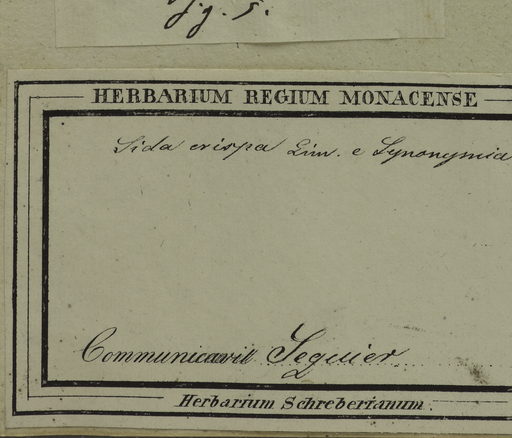 fig. 5.
HERBARIUM REGIUM MONACENSE
Sida crispa Lin. e Synonymia
Communicavit Seguier
Herbarium Schreberianum.